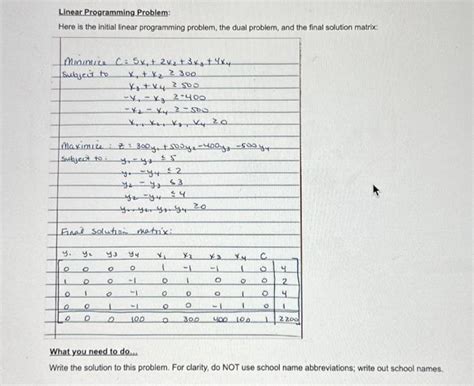 Linear Programming Problem:
Here is the initial linear programming problem, the dual problem, and the final solution matrix:
Minimize C = 5x₁ + 2x₂ + 3x₃ + 4x₄
Subject to x₁ + x₂ ≥ 300
x₃ + x₄ ≥ 500
-x₁ - x₃ ≥ -400
-x₂ - x₄ ≥ -500
x₁, x₂, x₃, x₄ ≥ 0
Maximize: z = 300y₁ + 500y₂ - 400y₃ - 500y₄
Subject to: y₁ - y₃ ≤ 5
y₁ - y₄ ≤ 2
y₂ - y₃ ≤ 3
y₂ - y₄ ≤ 4
y₁, y₂, y₃, y₄ ≥ 0
Final solution matrix:
y₁ y₂ y₃ y₄ x₁ x₂ x₃ x₄ C
0 0 0 0 1 -1 -1 1 0 4
1 0 0 -1 0 1 0 0 0 2
0 1 0 -1 0 0 0 1 0 4
0 0 1 -1 0 0 -1 1 0 1
0 0 0 100 0 300 400 100 1 2200
What you need to do...
Write the solution to this problem. For clarity, do NOT use school name abbreviations; write out school names.